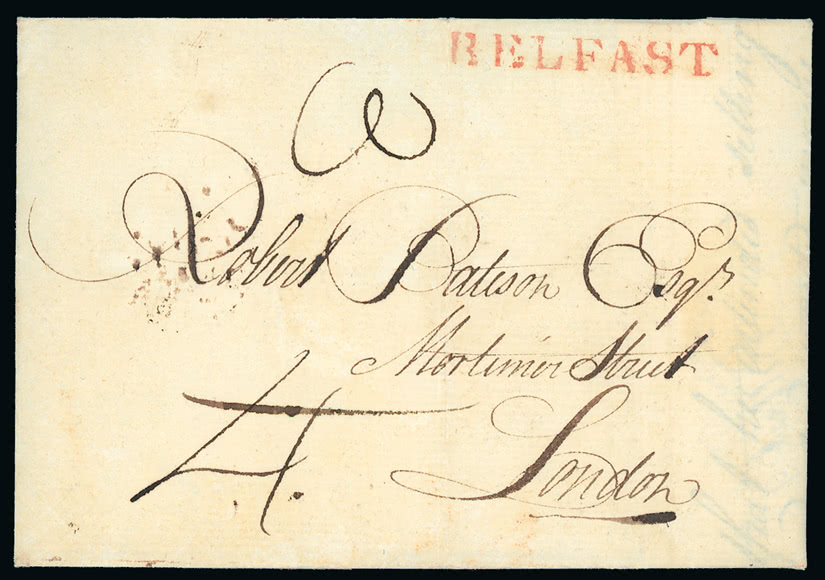 BELFAST
Robert Bateson Esqr.
Mortimer Street
London
4.